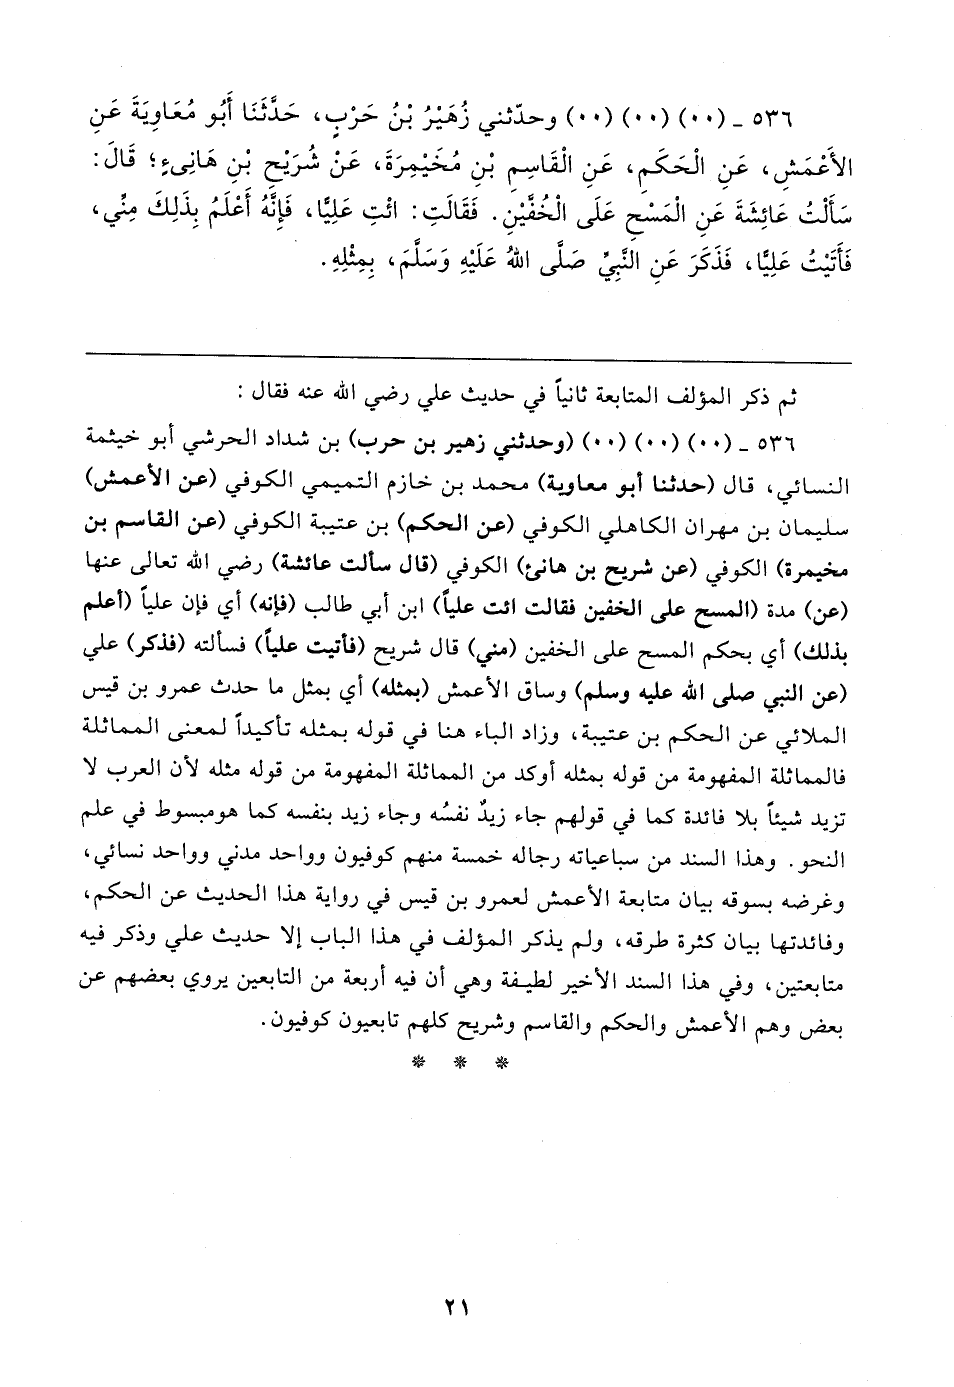 ٥٣٦ ـ (٠٠) (٠٠) (٠٠) وحدّثني زُهَيْرُ بْنُ حَرْبٍ، حَدَّثَنَا أَبُو مُعَاوِيَةَ عَنِ
الأَعْمَشِ، عَنِ الْحَكَمِ، عَنِ الْقَاسِمِ بْنِ مُخَيْمِرَةَ، عَنْ شُرَيْحِ بْنِ هَانِىءٍ؛ قَالَ:
سَأَلْتُ عَائِشَةَ عَنِ الْمَسْحِ عَلَى الْخُفَّيْنِ. فَقَالَتِ: ائْتِ عَلِيًّا، فَإِنَّهُ أَعْلَمُ بِذَلِكَ مِنِّي،
فَأَتَيْتُ عَلِيًّا، فَذَكَرَ عَنِ النَّبِيِّ صَلَّى اللهُ عَلَيْهِ وَسَلَّمَ، بِمِثْلِهِ.
ثم ذكر المؤلف المتابعة ثانياً في حديث علي رضي الله عنه فقال:
٥٣٦ ـ (٠٠) (٠٠) (٠٠) (وحدثني زهير بن حرب) بن شداد الحرشي أبو خيثمة
النسائي، قال (حدثنا أبو معاوية) محمد بن خازم التميمي الكوفي (عن الأعمش)
سليمان بن مهران الكاهلي الكوفي (عن الحكم) بن عتيبة الكوفي (عن القاسم بن
مخيمرة) الكوفي (عن شريح بن هانئ) الكوفي (قال سألت عائشة) رضي الله تعالى عنها
(عن) مدة (المسح على الخفين فقالت ائت علياً) ابن أبي طالب (فإنه) أي فإن علياً (أعلم
بذلك) أي بحكم المسح على الخفين (مني) قال شريح (فأتيت علياً) فسألته (فذكر) علي
(عن النبي صلى الله عليه وسلم) وساق الأعمش (بمثله) أي بمثل ما حدث عمرو بن قيس
الملائي عن الحكم بن عتيبة، وزاد الباء هنا في قوله بمثله تأكيداً لمعنى المماثلة
فالمماثلة المفهومة من قوله بمثله أوكد من المماثلة المفهومة من قوله مثله لأن العرب لا
تزيد شيئاً بلا فائدة كما في قولهم جاء زيدٌ نفسُه وجاء زيد بنفسه كما هومبسوط في علم
النحو. وهذا السند من سباعياته رجاله خمسة منهم كوفيون وواحد مدني وواحد نسائي،
وغرضه بسوقه بيان متابعة الأعمش لعمرو بن قيس في رواية هذا الحديث عن الحكم،
وفائدتها بيان كثرة طرقه، ولم يذكر المؤلف في هذا الباب إلا حديث علي وذكر فيه
متابعتين، وفي هذا السند الأخير لطيفة وهي أن فيه أربعة من التابعين يروي بعضهم عن
بعض وهم الأعمش والحكم والقاسم وشريح كلهم تابعيون كوفيون.
* * *
٢١